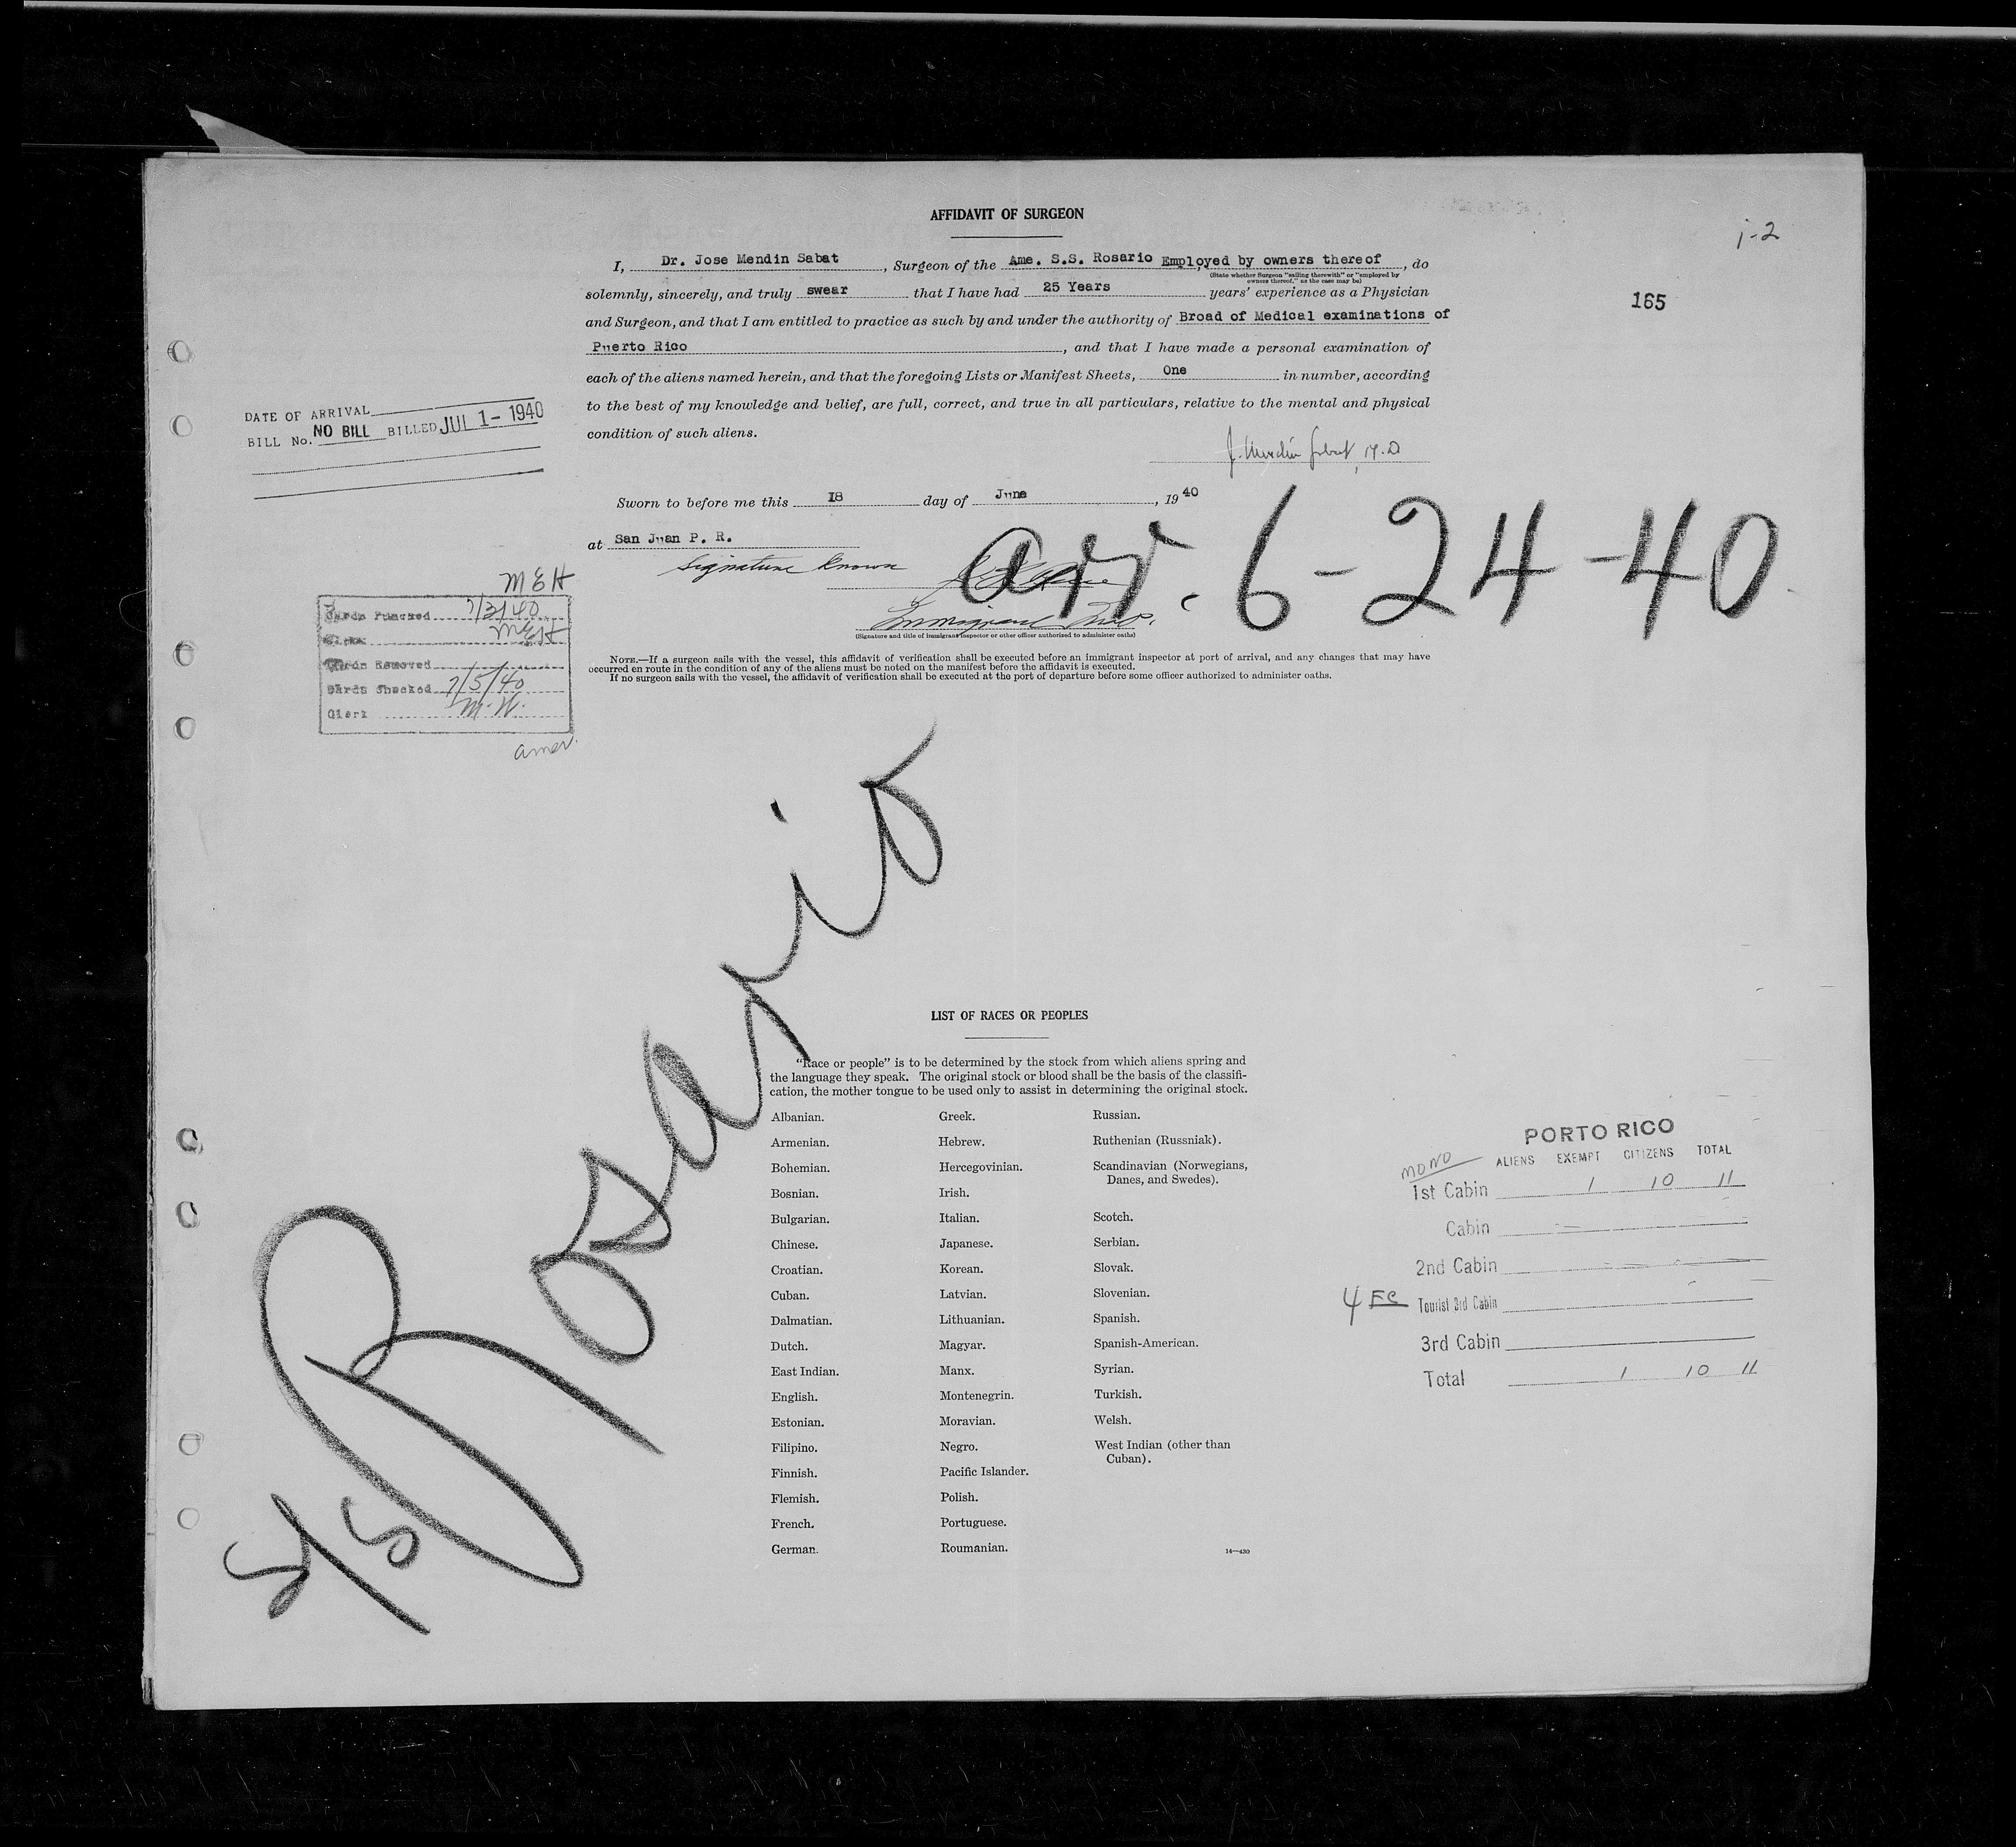 AFFIDAVIT OF SURGEON
1-2
165
I, Dr. Jose Mendin Sabat, Surgeon of the Ame. S.S. Rosario Employed by owners thereof, do
(State whether Surgeon "sailing therewith" or "employed by
owners thereof," as the case may be)
solemnly, sincerely, and truly swear that I have had 25 Years years' experience as a Physician
and Surgeon, and that I am entitled to practice as such by and under the authority of Broad of Medical examinations of
Puerto Rico, and that I have made a personal examination of
each of the aliens named herein, and that the foregoing Lists or Manifest Sheets, One in number, according
to the best of my knowledge and belief, are full, correct, and true in all particulars, relative to the mental and physical
condition of such aliens.
J. Mendin Sabat, M.D
DATE OF ARRIVAL
BILL No. NO BILL BILLED JUL 1 - 1940
Sworn to before me this 18 day of June, 19 40
at San Juan P. R.
Signature known
arr. 6-24-40
Immigrant Insp.
(Signature and title of immigrant inspector or other officer authorized to administer oaths)
MEH
Cards Punched 7/3/40
Clerk MEH
Cards Removed
Cards Checked 7/5/40
Clerk M.W.
amer.
NOTE.—If a surgeon sails with the vessel, this affidavit of verification shall be executed before an immigrant inspector at port of arrival, and any changes that may have
occurred en route in the condition of any of the aliens must be noted on the manifest before the affidavit is executed.
If no surgeon sails with the vessel, the affidavit of verification shall be executed at the port of departure before some officer authorized to administer oaths.
S/S Rosario
LIST OF RACES OR PEOPLES
"Race or people" is to be determined by the stock from which aliens spring and
the language they speak. The original stock or blood shall be the basis of the classifi-
cation, the mother tongue to be used only to assist in determining the original stock.
Albanian.
Armenian.
Bohemian.
Bosnian.
Bulgarian.
Chinese.
Croatian.
Cuban.
Dalmatian.
Dutch.
East Indian.
English.
Estonian.
Filipino.
Finnish.
Flemish.
French.
German.
Greek.
Hebrew.
Hercegovinian.
Irish.
Italian.
Japanese.
Korean.
Latvian.
Lithuanian.
Magyar.
Manx.
Montenegrin.
Moravian.
Negro.
Pacific Islander.
Polish.
Portuguese.
Roumanian.
Russian.
Ruthenian (Russniak).
Scandinavian (Norwegians,
Danes, and Swedes).
Scotch.
Serbian.
Slovak.
Slovenian.
Spanish.
Spanish-American.
Syrian.
Turkish.
Welsh.
West Indian (other than
Cuban).
14—430
PORTO RICO
MONO
ALIENS EXEMPT CITIZENS TOTAL
1st Cabin 1 10 11
Cabin
2nd Cabin
4 FC Tourist 3rd Cabin
3rd Cabin
Total 1 10 11